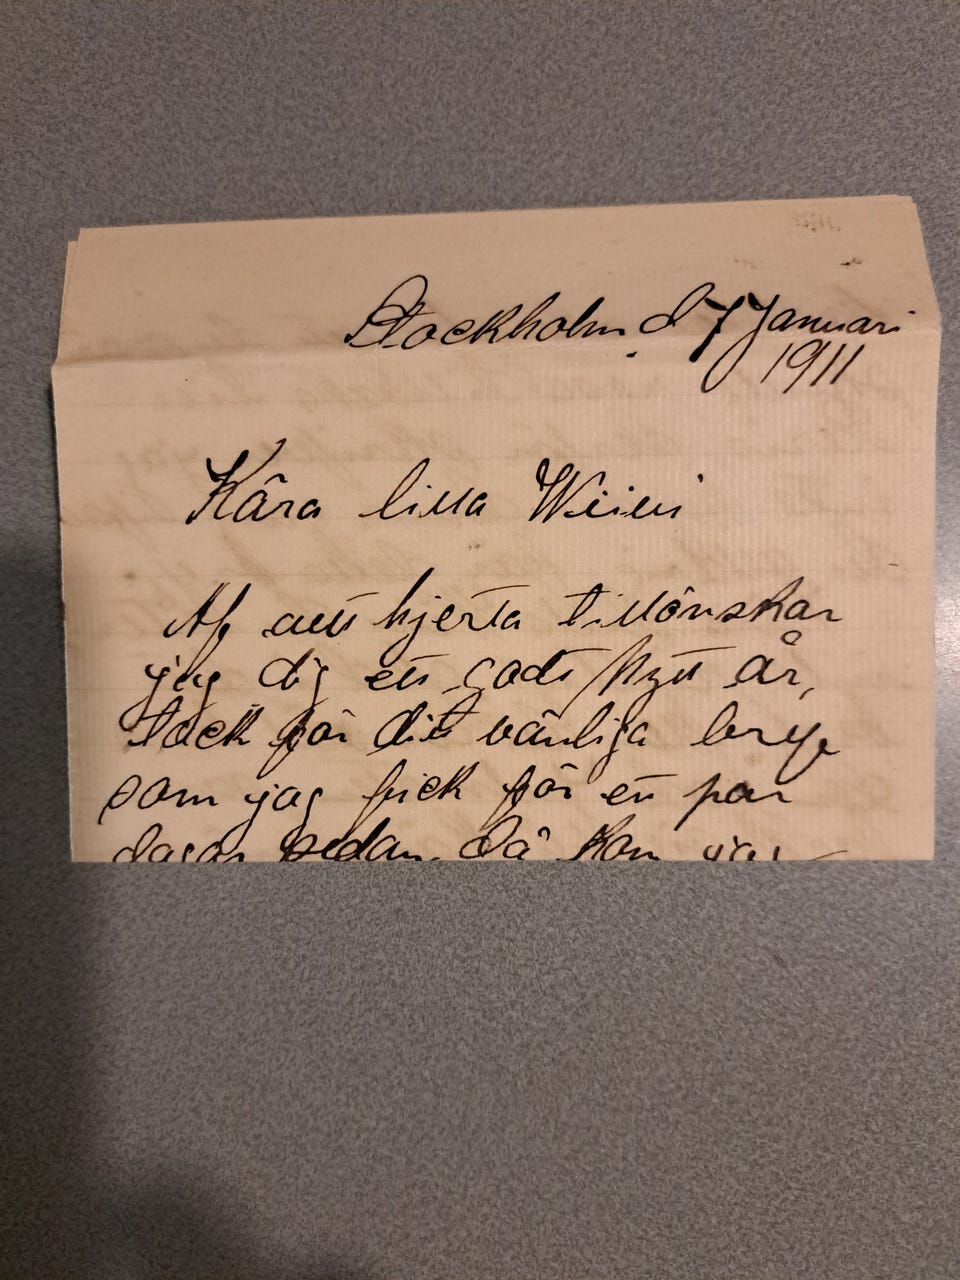 Stockholm d 7 Januari
1911
Kära lilla
Af allt hjerta tillönskar
jag dig ett godt Nytt år,
tack för ditt vänliga bref
som jag fick för ett par
dagar sedan. Då kom jag